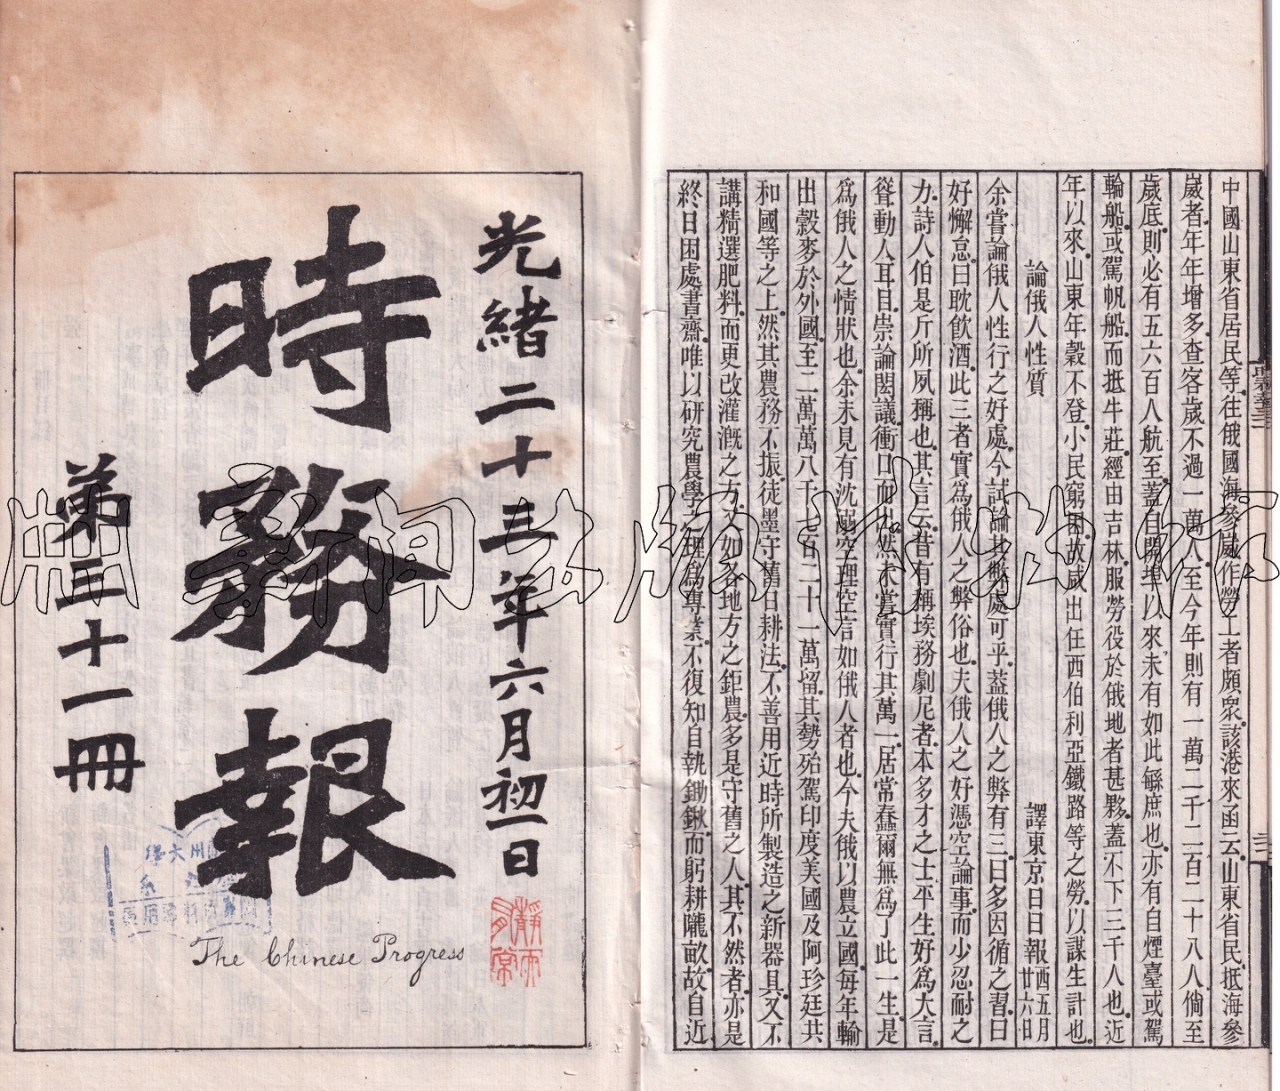 中國山東省居民等往俄國海參崴作勞工者頗衆該港來函云山東省民抵海參
崴者年年增多查客歲不過一萬人至今年則有一萬二千二百二十八人倘至
歲底則必有五六百人航至蓋自開埠以來未有如此緐庶也亦有自煙臺或駕
輪船或駕帆船而抵牛莊經由吉林服勞役於俄地者甚夥蓋不下三千人也近
年以來山東年穀不登小民窮困故咸出任西伯利亞鐵路等之勞以謀生計也
論俄人性質 譯東京日日報 西五月廿六日
余嘗論俄人性行之好處今試論其弊處可乎蓋俄人之弊有三曰多因循之習曰
好懈怠曰耽飲酒此三者實爲俄人之弊俗也夫俄人之好憑空論事而少忍耐之
力詩人伯是斤所夙稱也其言云昔有稱埃務劇尼者本多才之士平生好爲大言
聳動人耳目崇論閎議衝口而出然未嘗實行其萬一居常蠢爾無爲了此一生是
爲俄人之情狀也余未見有沈溺空理空言如俄人者也今夫俄以農立國每年輸
出穀麥於外國至二萬萬八千七百二十一萬留其勢殆駕印度美國及阿珍廷共
和國等之上然其農務不振徒墨守舊日耕法不善用近時所製造之新器具又不
講精選肥料而更改灌漑之方又如各地方之鉅農多是守舊之人其不然者亦是
終日困處書齋唯以研究農學之理爲專業不復知自執鋤鍬而躬耕隴畝故自近
光緒二十三年六月初一日
時務報
第三十一冊
The Chinese Progress